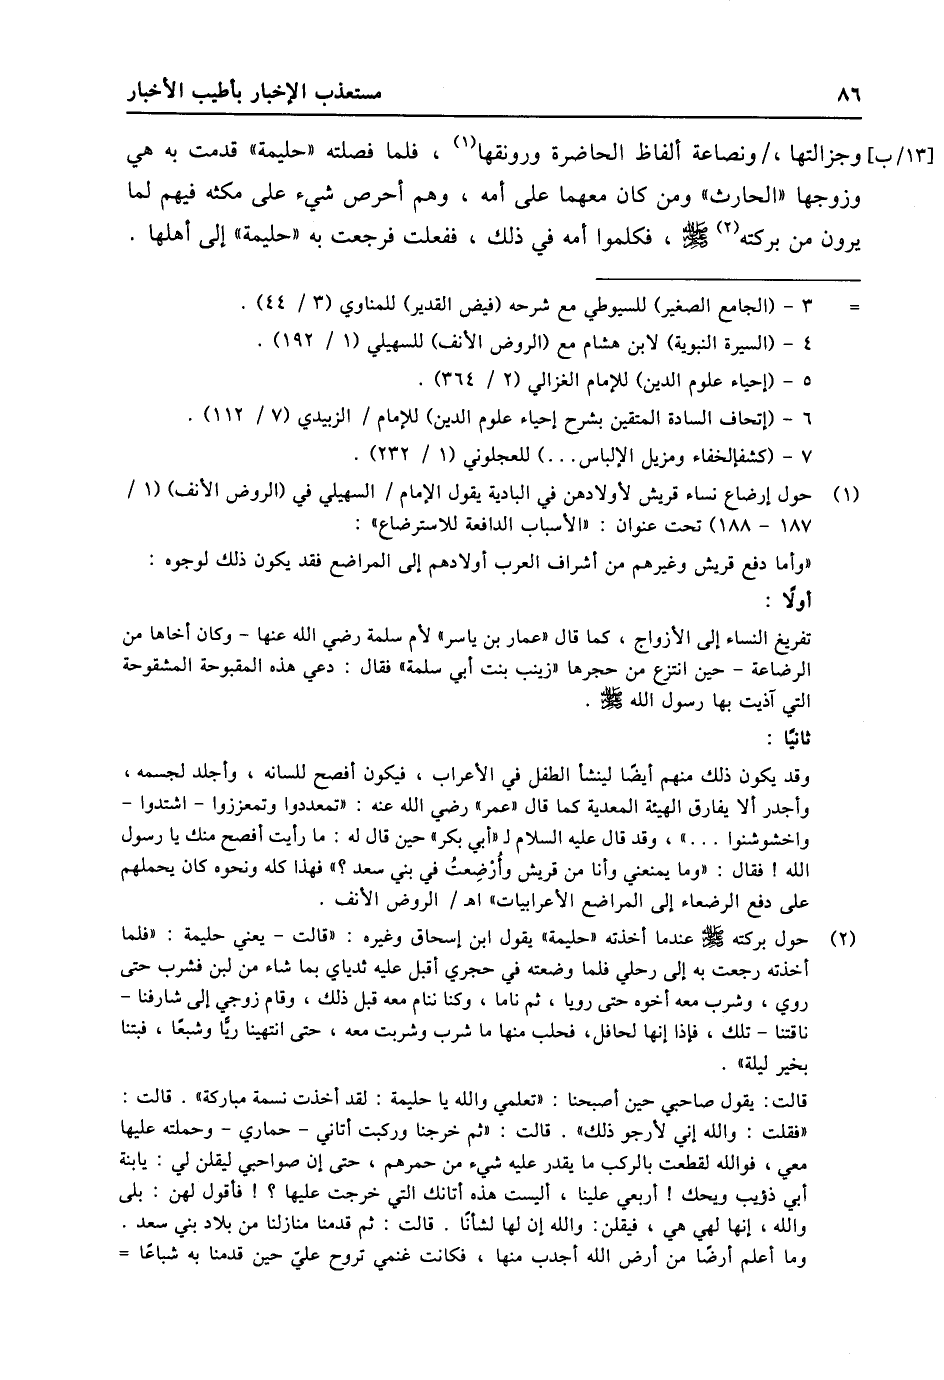 ٨٦ مستعذب الإخبار بأطيب الأخبار
[١٣/ ب] وجزالتها ،/ ونصاعة ألفاظ الحاضرة ورونقها(١) ، فلما فصلته «حليمة» قدمت به هي
وزوجها «الحارث» ومن كان معهما على أمه ، وهم أحرص شيء على مكثه فيهم لما
يرون من بركته(٢) ﷺ ، فكلموا أمه في ذلك ، ففعلت فرجعت به «حليمة» إلى أهلها .
= ٣ – (الجامع الصغير) للسيوطي مع شرحه (فيض القدير) للمناوي (٣ / ٤٤) .
٤ – (السيرة النبوية) لابن هشام مع (الروض الأنف) للسهيلي (١ / ١٩٢) .
٥ – (إحياء علوم الدين) للإمام الغزالي (٢ / ٣٦٤) .
٦ – (إتحاف السادة المتقين بشرح إحياء علوم الدين) للإمام / الزبيدي (٧ / ١١٢) .
٧ – (كشفإلخفاء ومزيل الإلباس...) للعجلوني (١ / ٢٣٢) .
(١) حول إرضاع نساء قريش لأولادهن في البادية يقول الإمام / السهيلي في (الروض الأنف) (١ /
١٨٧ – ١٨٨) تحت عنوان : «الأسباب الدافعة للاسترضاع» :
«وأما دفع قريش وغيرهم من أشراف العرب أولادهم إلى المراضع فقد يكون ذلك لوجوه :
أولًا :
تفريغ النساء إلى الأزواج ، كما قال «عمار بن ياسر» لأم سلمة رضي الله عنها – وكان أخاها من
الرضاعة – حين انتزع من حجرها «زينب بنت أبي سلمة» فقال : دعي هذه المقبوحة المشقوحة
التي آذيت بها رسول الله ﷺ .
ثانيًا :
وقد يكون ذلك منهم أيضًا لينشأ الطفل في الأعراب ، فيكون أفصح للسانه ، وأجلد لجسمه ،
وأجدر ألا يفارق الهيئة المعدية كما قال «عمر» رضي الله عنه : «تمعددوا وتمعززوا – اشتدوا –
واخشوشنوا ...» ، وقد قال عليه السلام لـ «أبي بكر» حين قال له : ما رأيت أفصح منك يا رسول
الله ! فقال : «وما يمنعني وأنا من قريش وأُرْضِعتُ في بني سعد ؟» فهذا كله ونحوه كان يحملهم
على دفع الرضعاء إلى المراضع الأعرابيات» اهـ / الروض الأنف .
(٢) حول بركته ﷺ عندما أخذته «حليمة» يقول ابن إسحاق وغيره : «قالت – يعني حليمة : «فلما
أخذته رجعت به إلى رحلي فلما وضعته في حجري أقبل عليه ثدياي بما شاء من لبن فشرب حتى
روي ، وشرب معه أخوه حتى رويا ، ثم ناما ، وكنا ننام معه قبل ذلك ، وقام زوجي إلى شارفنا –
ناقتنا – تلك ، فإذا إنها لحافل، فحلب منها ما شرب وشربت معه ، حتى انتهينا ريًّا وشبعًا ، فبتنا
بخير ليلة» .
قالت: يقول صاحبي حين أصبحنا : «تعلمي والله يا حليمة : لقد أخذت نسمة مباركة» . قالت :
«فقلت : والله إني لأرجو ذلك» . قالت : «ثم خرجنا وركبت أتاني – حماري – وحملته عليها
معي ، فوالله لقطعت بالركب ما يقدر عليه شيء من حمرهم ، حتى إن صواحبي ليقلن لي : يابنة
أبي ذؤيب ويحك ! أربعي علينا ، أليست هذه أتانك التي خرجت عليها ؟ ! فأقول لهن : بلى
والله ، إنها لهي هي ، فيقلن: والله إن لها لشأنًا . قالت : ثم قدمنا منازلنا من بلاد بني سعد .
وما أعلم أرضًا من أرض الله أجدب منها ، فكانت غنمي تروح عليّ حين قدمنا به شباعًا =